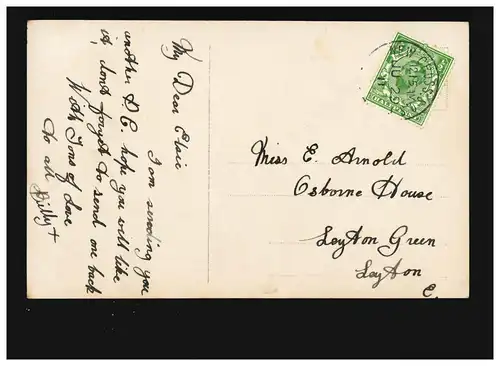 My Dear Elsie
I am sending you
another P.C. hope you will like
it, dont forget to send one back
With Tons of Love
to all
Billy +
Miss E. Arnold
Osborne House
Leyton Green
Leyton
E.